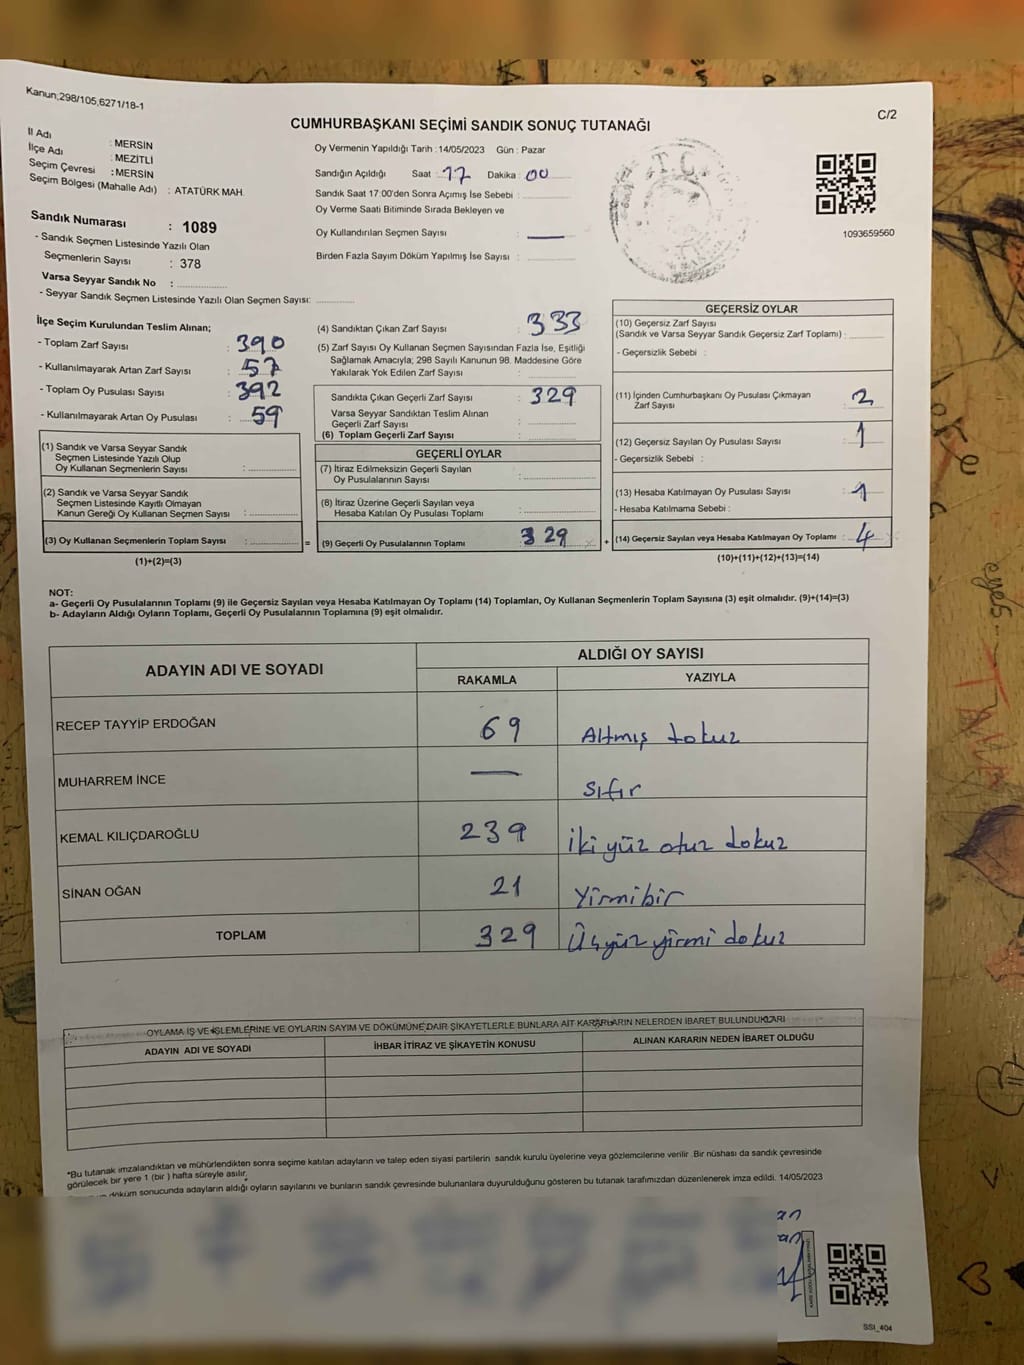 Kanun;298/105,6271/18-1
C/2
CUMHURBAŞKANI SEÇİMİ SANDIK SONUÇ TUTANAĞI
İl Adı : MERSİN
İlçe Adı : MEZİTLİ
Seçim Çevresi : MERSİN
Seçim Bölgesi (Mahalle Adı) : ATATÜRK MAH.
Sandık Numarası : 1089
- Sandık Seçmen Listesinde Yazılı Olan
Seçmenlerin Sayısı : 378
Varsa Seyyar Sandık No :
- Seyyar Sandık Seçmen Listesinde Yazılı Olan Seçmen Sayısı:
Oy Vermenin Yapıldığı Tarih :14/05/2023 Gün : Pazar
Sandığın Açıldığı Saat : 17 Dakika : 00
Sandık Saat 17:00'den Sonra Açımış İse Sebebi :
Oy Verme Saati Bitiminde Sırada Bekleyen ve
Oy Kullandırılan Seçmen Sayısı : —
Birden Fazla Sayım Döküm Yapılmış İse Sayısı :
T.C.
1093659560
İlçe Seçim Kurulundan Teslim Alınan;
- Toplam Zarf Sayısı : 390
- Kullanılmayarak Artan Zarf Sayısı : 57
- Toplam Oy Pusulası Sayısı : 392
- Kullanılmayarak Artan Oy Pusulası : 59
(1) Sandık ve Varsa Seyyar Sandık
Seçmen Listesinde Yazılı Olup
Oy Kullanan Seçmenlerin Sayısı :
(2) Sandık ve Varsa Seyyar Sandık
Seçmen Listesinde Kayıtlı Olmayan
Kanun Gereği Oy Kullanan Seçmen Sayısı :
(3) Oy Kullanan Seçmenlerin Toplam Sayısı :
(1)+(2)=(3)
=
(4) Sandıktan Çıkan Zarf Sayısı : 333
(5) Zarf Sayısı Oy Kullanan Seçmen Sayısından Fazla İse, Eşitliği
Sağlamak Amacıyla; 298 Sayılı Kanunun 98. Maddesine Göre
Yakılarak Yok Edilen Zarf Sayısı :
Sandıkta Çıkan Geçerli Zarf Sayısı : 329
Varsa Seyyar Sandıktan Teslim Alınan
Geçerli Zarf Sayısı :
(6) Toplam Geçerli Zarf Sayısı :
GEÇERLİ OYLAR
(7) İtiraz Edilmeksizin Geçerli Sayılan
Oy Pusulalarının Sayısı :
(8) İtiraz Üzerine Geçerli Sayılan veya
Hesaba Katılan Oy Pusulası Toplamı :
(9) Geçerli Oy Pusulalarının Toplamı : 329
+
GEÇERSİZ OYLAR
(10) Geçersiz Zarf Sayısı
(Sandık ve Varsa Seyyar Sandık Geçersiz Zarf Toplamı) :
- Geçersizlik Sebebi :
(11) İçinden Cumhurbaşkanı Oy Pusulası Çıkmayan
Zarf Sayısı : 2
(12) Geçersiz Sayılan Oy Pusulası Sayısı : 1
- Geçersizlik Sebebi :
(13) Hesaba Katılmayan Oy Pusulası Sayısı : 1
- Hesaba Katılmama Sebebi :
(14) Geçersiz Sayılan veya Hesaba Katılmayan Oy Toplamı : 4
(10)+(11)+(12)+(13)=(14)
NOT:
a- Geçerli Oy Pusulalarının Toplamı (9) ile Geçersiz Sayılan veya Hesaba Katılmayan Oy Toplamı (14) Toplamları, Oy Kullanan Seçmenlerin Toplam Sayısına (3) eşit olmalıdır. (9)+(14)=(3)
b- Adayların Aldığı Oyların Toplamı, Geçerli Oy Pusulalarının Toplamına (9) eşit olmalıdır.
ADAYIN ADI VE SOYADI ALDIĞI OY SAYISI
RAKAMLA YAZIYLA
RECEP TAYYİP ERDOĞAN 69 Altmış dokuz
MUHARREM İNCE — Sıfır
KEMAL KILIÇDAROĞLU 239 iki yüz otuz dokuz
SİNAN OĞAN 21 Yirmibir
TOPLAM 329 Üçyüz yirmi dokuz
OYLAMA İŞ VE İŞLEMLERİNE VE OYLARIN SAYIM VE DÖKÜMÜNE DAİR ŞİKAYETLERLE BUNLARA AİT KARARLARIN NELERDEN İBARET BULUNDUKLARI
ADAYIN ADI VE SOYADI İHBAR İTİRAZ VE ŞİKAYETİN KONUSU ALINAN KARARIN NEDEN İBARET OLDUĞU
*Bu tutanak imzalandıktan ve mühürlendikten sonra seçime katılan adayların ve talep eden siyasi partilerin sandık kurulu üyelerine veya gözlemcilerine verilir .Bir nüshası da sandık çevresinde
görülecek bir yere 1 (bir ) hafta süreyle asılır.
döküm sonucunda adayların aldığı oyların sayılarını ve bunların sandık çevresinde bulunanlara duyurulduğunu gösteren bu tutanak tarafımızdan düzenlenerek imza edildi. 14/05/2023
SSI_404